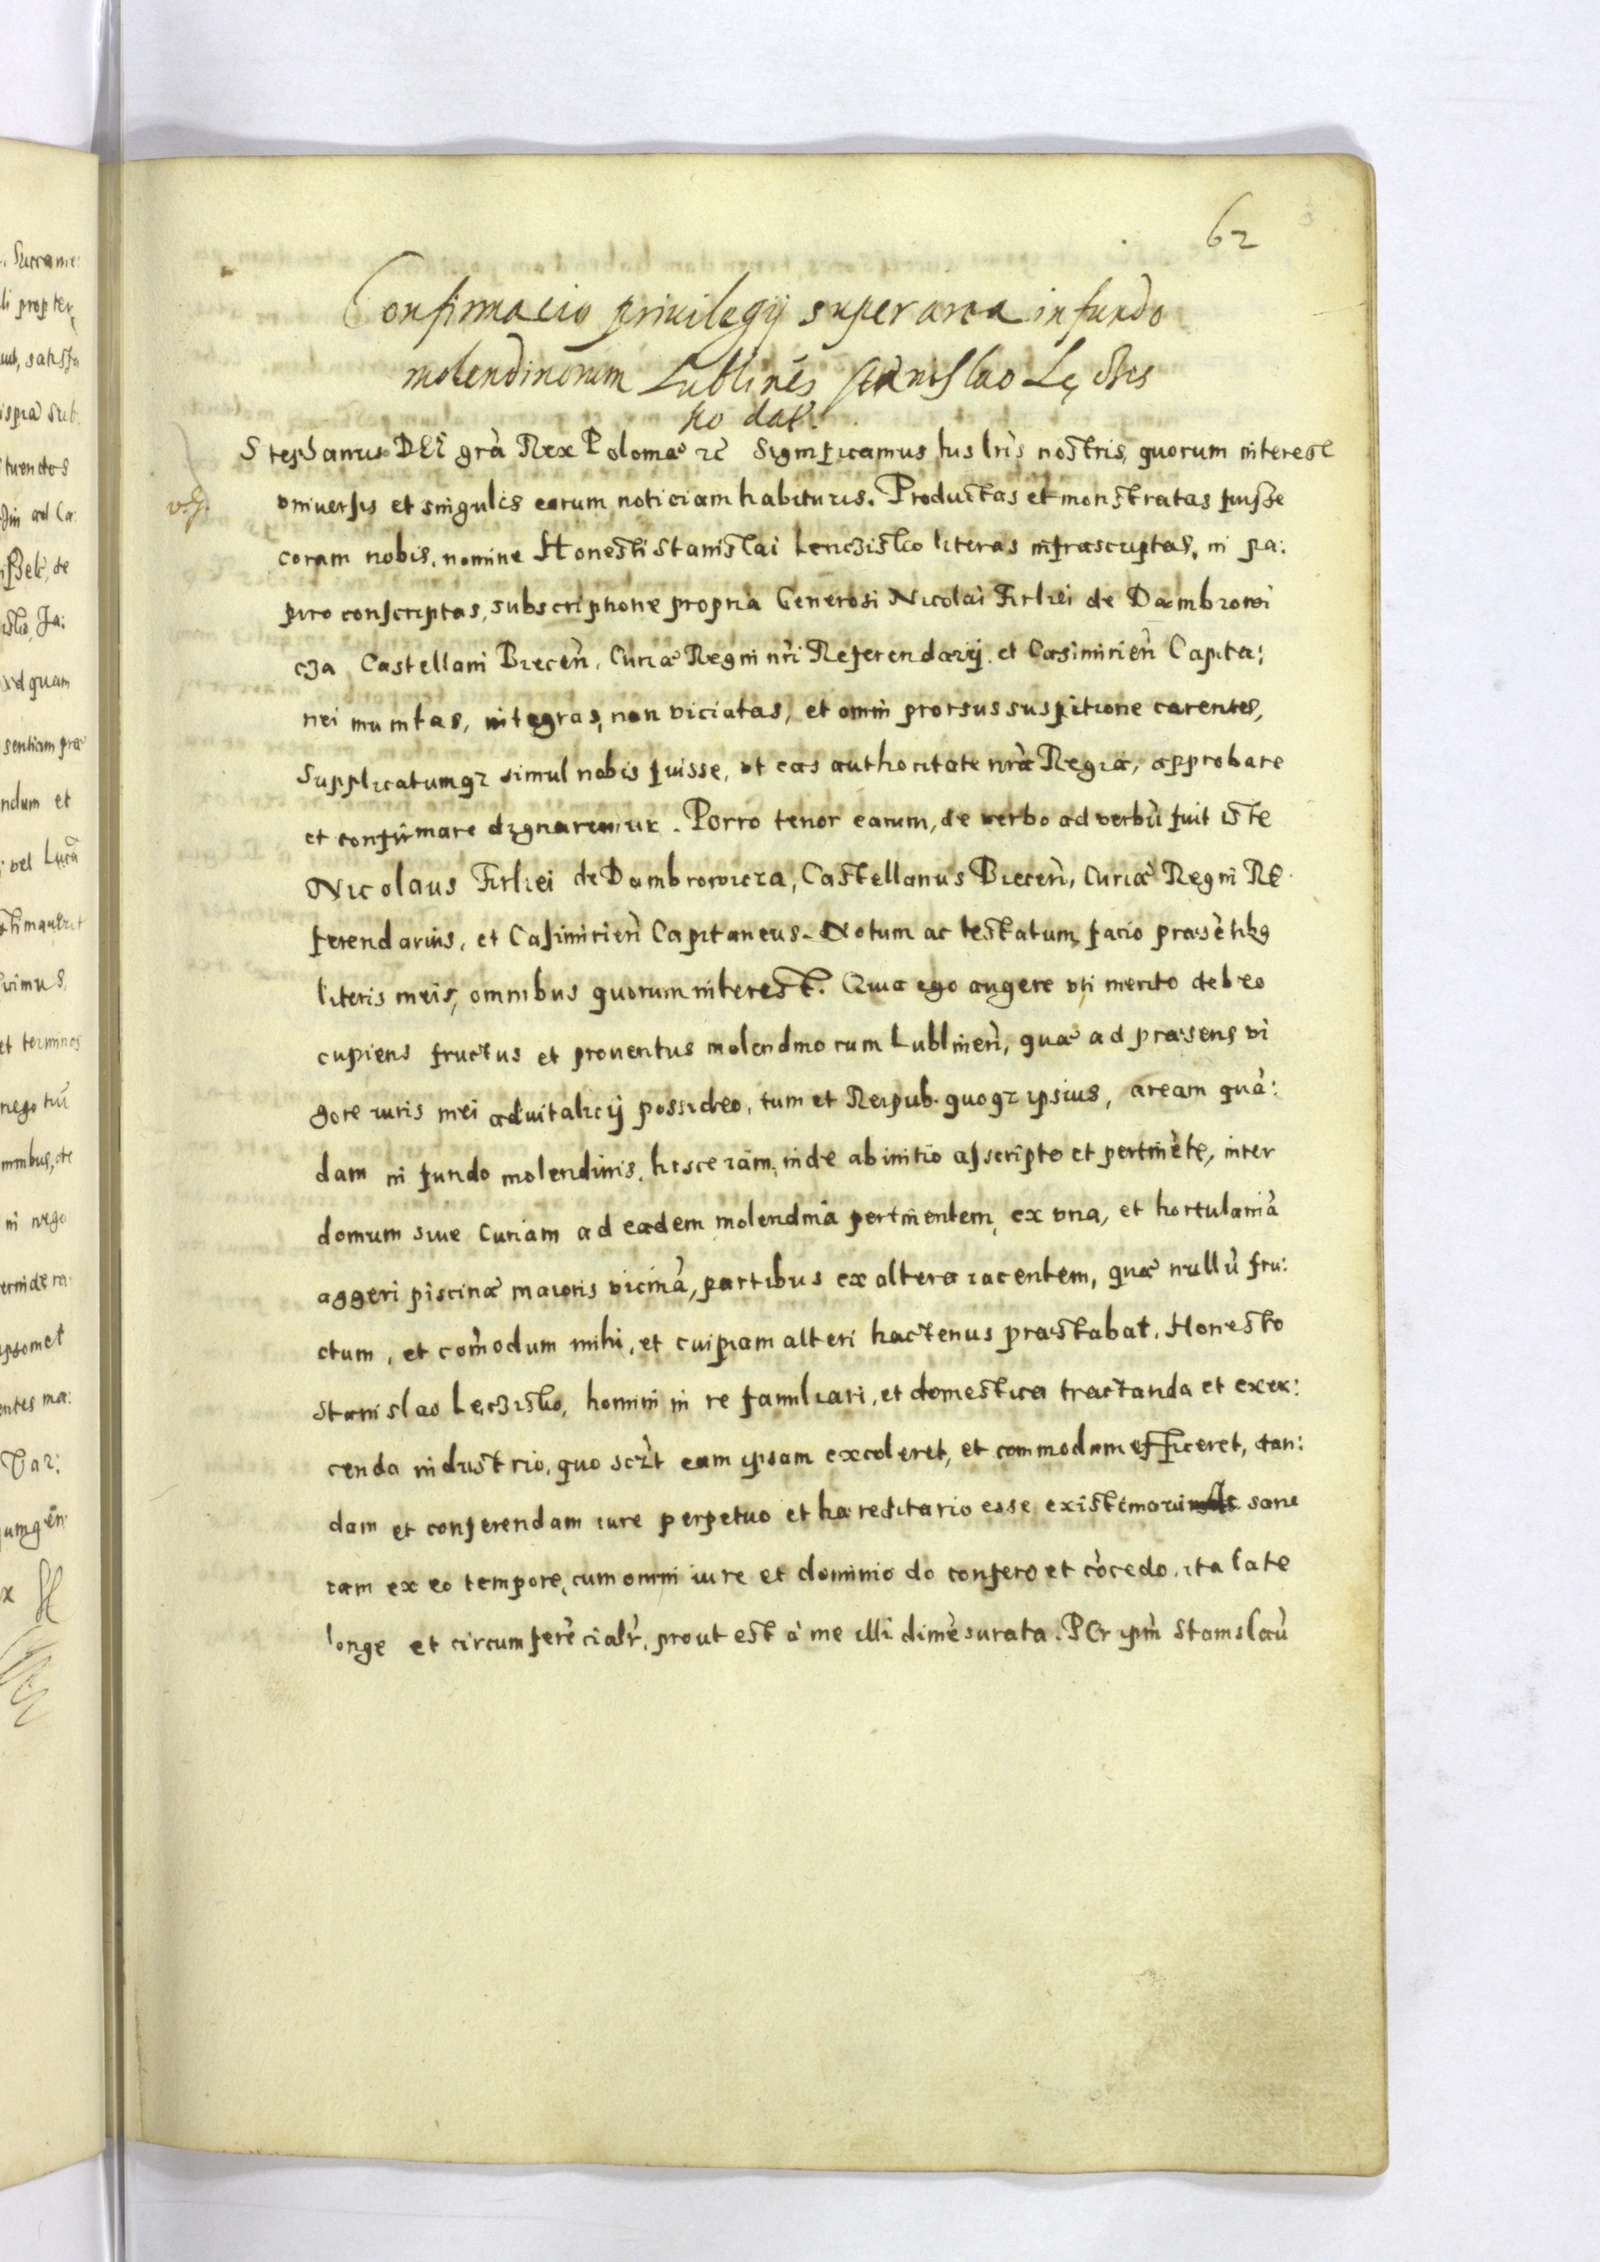 62
Confirmacio priuilegij super area in fundo
molendinorum Lublinēs Stanislao Lęcʒis
ko dat.
Stephanus DEI grā Rex Poloniæ ꝛc̄ Significamus his lr̄is nostris, quorum interest
vniuersis et singulis earum noticiam habituris. Productas et monstratas fuisse
coram nobis, nomine Honesti Stanislai Lencʒisko literas infrascriptas, in pa:
piro conscriptas, subscriptione propria Generosi Nicolai Firliei de Dambrowi
cʒa, Castellani Biecen̄, Curiæ Regni nr̄i Referendarij, et Casimirien̄ Capita:
nei munitas, integras, non viciatas, et omni prorsus suspitione carentes,
Supplicatumqꝫ simul nobis fuisse, vt eas authoritate nr̄a Regia, approbare
et confirmare dignaremur. Porro tenor earum, de verbo ad verbū fuit iste
Nicolaus Firliei de Dambrowicza, Castellanus Biecen̄, Curiæ Regni Re
ferendarius, et Casimirien̄ Capitaneus. Notum ac testatum facio præsētibꝫ
literis meis, omnibus quorum interest. Quia ego augere vti merito debeo
cupiens fructus et prouentus molendinorum Lublinen̄, quæ ad præsens vi
gore iuris mei aduitalicij possideo, tum et Reipub. quoqꝫ ipsius, aream quā:
dam in fundo molendinis, hisce iam, inde ab initio asscripto et pertinēte, inter
domum siue Curiam ad eadem molendina pertinentem, ex vna, et hortulaniā
aggeri piscinæ maioris vicinā, partibus ex altera iacentem, quæ nullū fru:
ctum, et cōmodum mihi, et cuipiam alteri hactenus præstabat, Honesto
Stanislao Lęcʒisko, homini in re familiari, et domestica tractanda et exer:
cenda industrio, quo scꝫt eam ipsam excoleret, et commodam efficeret, dan:
dam et conferendam iure perpetuo et hæreditario esse existimaui sane
iam ex eo tempore, cum omni iure et dominio do confero et cōcedo, ita late
longe et circumferēcialr̄, prout est à me illi dimēsurata. Per ipm̄ Stanislaū